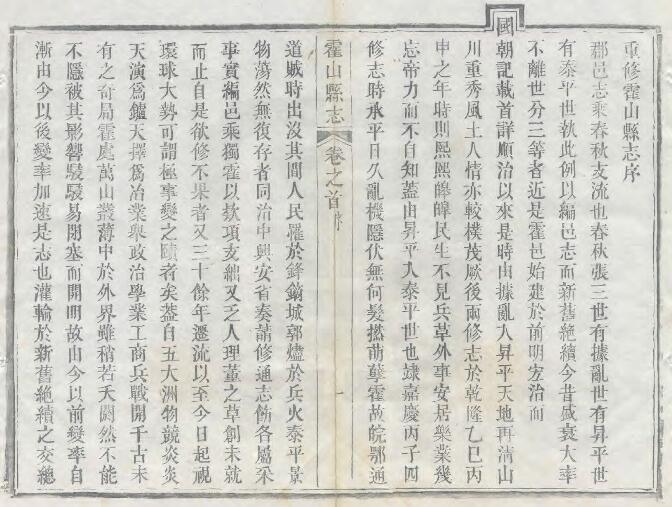 重修霍山縣志序
郡邑志乘春秋支流也春秋張三世有據亂世有昇平世
有泰平世執此例以編邑志而新舊絶續今昔盛衰大率
不離世分三等者近是霍邑始建於前明宏治而
國朝記載首詳順治以來是時由據亂入昇平天地再清山
川重秀風土人情亦較樸茂厥後兩修志於乾隆乙巳丙
申之年時則熙熙皥皥民生不見兵革外事安居樂業幾
忘帝力而不自知蓋由昇平入泰平世也逮嘉慶丙子四
修志時承平日久亂機隱伏無何髮撚萌孽霍故皖鄂通
霍山縣志
卷之首
序
一
道賊時出沒其間人民罹於鋒鏑城郭燼於兵火泰平景
物蕩然無復存者同治中興安省奏請修通志飭各屬采
事實編邑乘獨霍以欵項支絀又乏人理董之草創未就
而止自是欲修不果者又三十餘年遷流以至今日起視
環球大勢可謂極事變之賾者矣蓋自五大洲物競炎炎
天演爲鑪天擇爲冶業舉政治學業工商兵戰開千古未
有之奇局霍處萬山叢薄中於外界雖稍若夭閼然不能
不隱被其影響駸駸易閉塞而開明故由今以前變率自
漸由今以後變率加速是志也灌輸於新舊絶續之交總